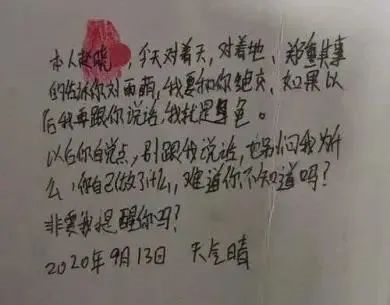 本人赵晓，今天对着天，对着地、郑重其事
的告诉你刘雨萌，我要和你绝交、如果以
后我再跟你说话，我就是色。
以后你自觉点，别跟我说话，也别问我为什
么，你自己做了什么，难道你不知道吗？
非要我提醒你吗？
2020年9月13日 天气晴